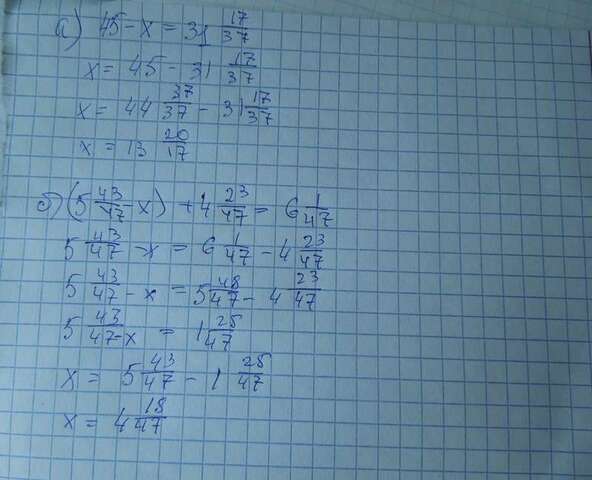 а) 45 - x = 31 17/37
x = 45 - 31 17/37
x = 44 37/37 - 31 17/37
x = 13 20/17
б) (5 43/47 - x) + 4 23/47 = 6 1/47
5 43/47 - x = 6 1/47 - 4 23/47
5 43/47 - x = 5 48/47 - 4 23/47
5 43/47 - x = 1 25/47
x = 5 43/47 - 1 25/47
x = 4 18/47